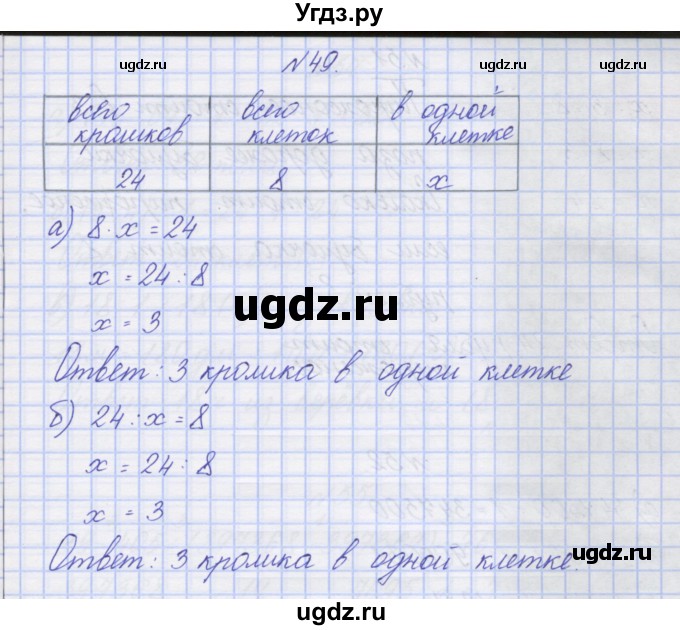 Угдз.ру
ugdz.ru ugdz.ru
N 49.
всего крошков | всего клеток | в одной клетке
24 | 8 | x
а) 8 · x = 24
x = 24 : 8
ugdz.ru
x = 3
Ответ: 3 кролика в одной клетке
б) 24 : x = 8
x = 24 : 8
x = 3
Ответ: 3 кролика в одной клетке.
ugdz.ru
ugdz.ru